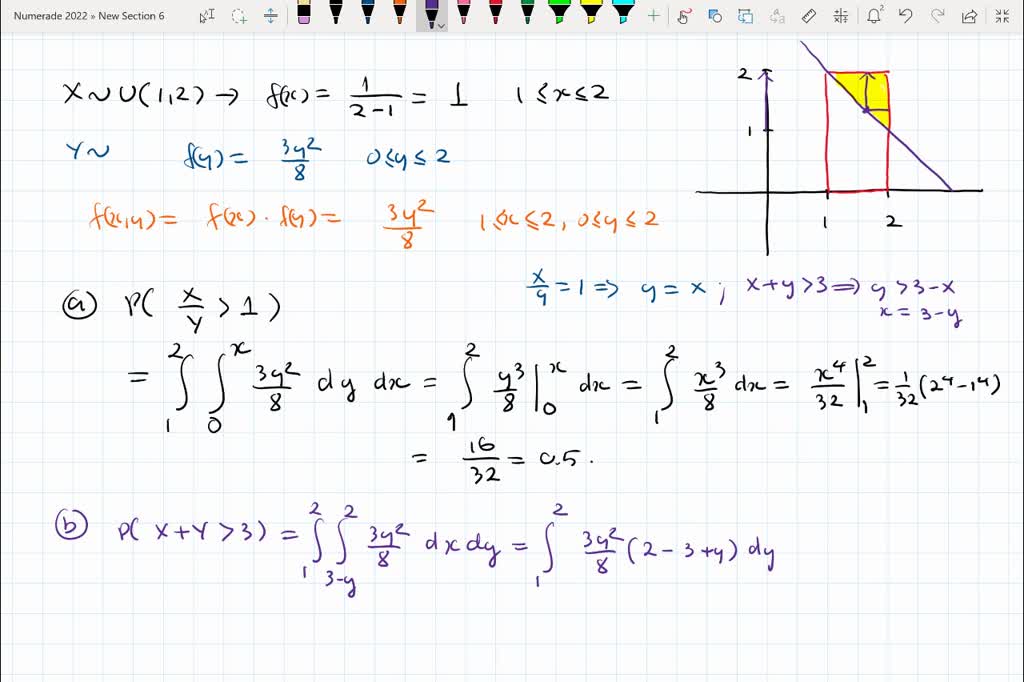 Numerade 2022 » New Section 6
X ~ U(1,2) → f(x) = 1/(2-1) = 1   1 ≤ x ≤ 2
Y ~   f(y) = 3y²/8   0 ≤ y ≤ 2
f(x,y) = f(x) · f(y) = 3y²/8   1 ≤ x ≤ 2, 0 ≤ y ≤ 2
2
1
1   2
x/y = 1 => y = x ; x+y > 3 => y > 3-x
x = 3-y
(a) P( X/Y > 1 )
= ∫₁² ∫₀ˣ 3y²/8 dy dx = ∫₁² y³/8 |₀ˣ dx = ∫₁² x³/8 dx = x⁴/32 |₁² = 1/32 (2⁴ - 1⁴)
= 16/32 = 0.5.
(b) P( X+Y > 3) = ∫₁² ∫_{3-y}² 3y²/8 dx dy = ∫₁² 3y²/8 (2-3+y) dy